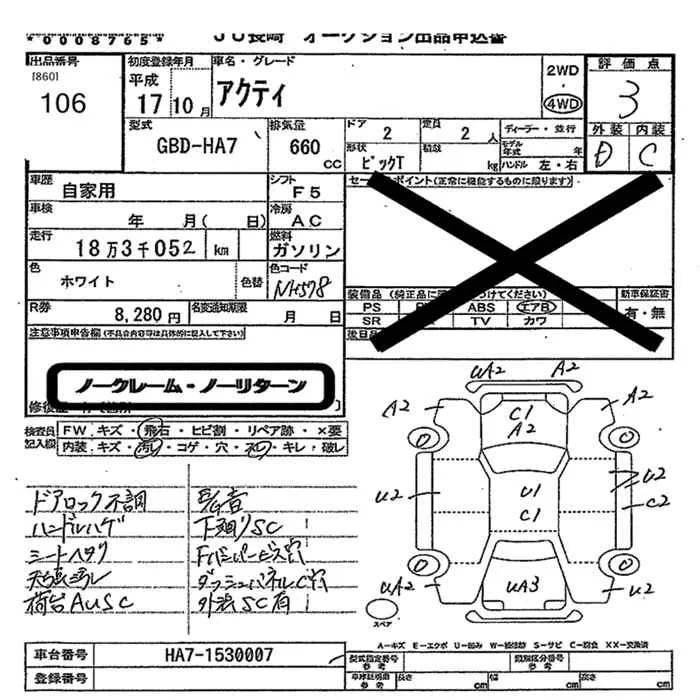 *0008765*
JU長崎 オークション出品申込書
出品番号
[860]
106
初度登録年月
平成
17 10月
車名・グレード
アクティ
2WD
4WD
評価点
3
外装 内装
D C
型式
GBD-HA7
排気量
660
CC
ドア
2
定員
2人
ディーラー・並行
形状
ピックT
積載
kg
モデル年式 年
ハンドル 左・右
車歴
自家用
シフト
F5
車検
年 月( 日)
冷房
AC
走行
18万3千052 km
燃料
ガソリン
色
ホワイト
色替
色コード
NH578
R券
8,280円
名変通知期限
月 日
セールスポイント(正常に機能するものに限ります)
PS
ABS
エアB
SR
TV
カワ
新車保証書
有・無
注意事項申告欄(不具合内容等は具体的に記入して下さい)
ノークレーム・ノーリターン
検査員記入欄
FW. キズ・飛石・ヒビ割・リペア跡・×要
内装. キズ・汚れ・コゲ・穴・ネジ・キレ・破レ
ドアロック不調
ハンドルハゲ
天張汚レ
荷台AUSC
下廻りSC
Fバンパービス穴
外装SC有
UA2 A2
A2 C1 A2
A2
U2
U1
C1
U2
C2
UA2
UA3
U2
スペア
A-キズ E-エクボ U-凹み W-補修跡 S-サビ C-腐食 XX-交換済
車台番号
HA7-1530007
登録番号
型式指定番号
参考
類別区分番号
参考
車庫証明用
参考
長さ cm
幅 cm
高さ cm